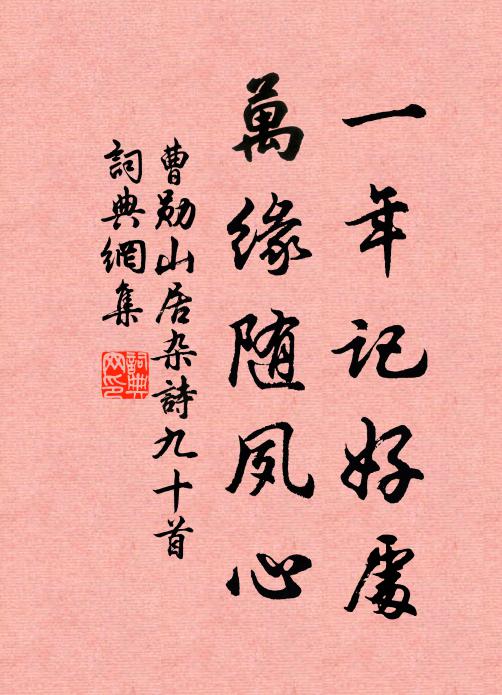 一年记好處
萬緣随夙心
曹勋山居杂詩九十首
詞典網集
詞典网印